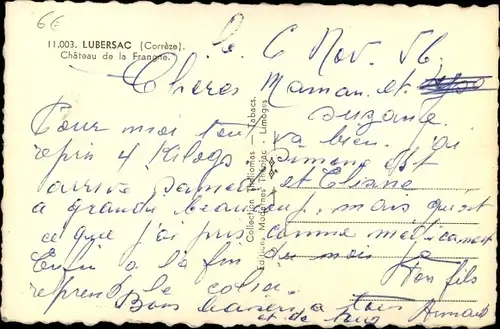 6€
11.003. LUBERSAC (Corrèze).
Château de la Frangne.
le 6 Nov. 56
Chères Maman et
Suzane
Pour moi tout va bien. j'ai
repris 4 Kilogs Simone est
arrivé samedi et Eliane
a grandi beaucoup, mais qu'est
ce que j'ai pris comme médicament
Enfin a la fin du mois je
reprend le colier. Ton fils
Bons baisers a tous Armand
et de tous
Collection Nationales — Tabacs.
Editions Modernes — Limoges